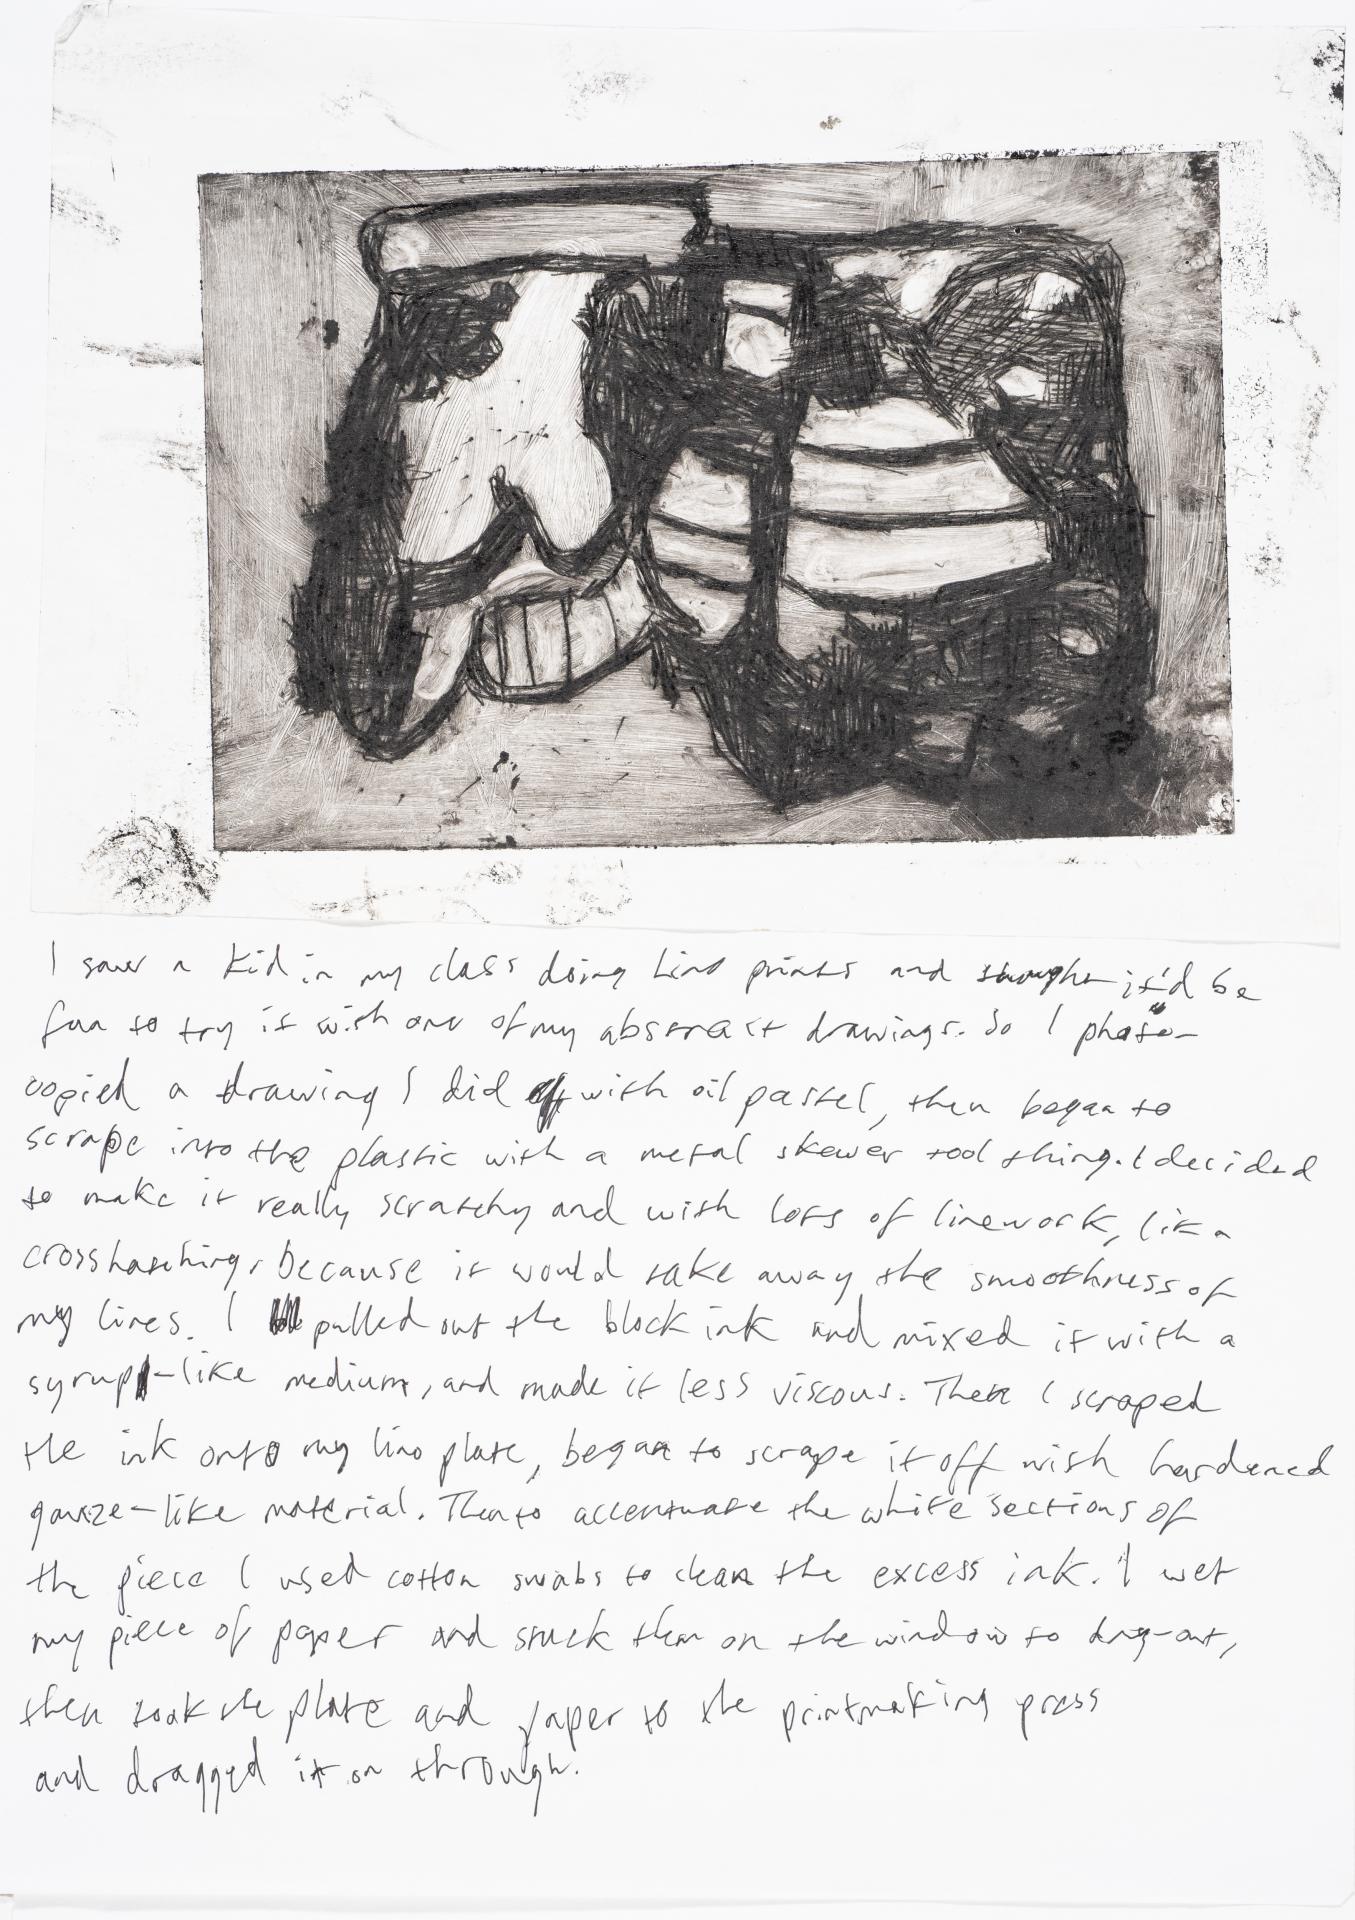 I saw a kid in my class doing lino prints and thought it'd be
fun to try it with one of my abstract drawings. So I photo-
copied a drawing I did with oil pastel, then began to
scrape into the plastic with a metal skewer tool thing. I decided
to make it really scratchy and with lots of linework, like
crosshatching, because it would take away the smoothness of
my lines. I pulled out the block ink and mixed it with a
syrup-like medium, and made it less viscous. Then I scraped
the ink onto my lino plate, began to scrape it off with hardened
gauze-like material. Then to accentuate the white sections of
the piece I used cotton swabs to clean the excess ink. I wet
my piece of paper and stuck them on the window to dry-out,
then took the plate and paper to the printmaking press
and dragged it on through.